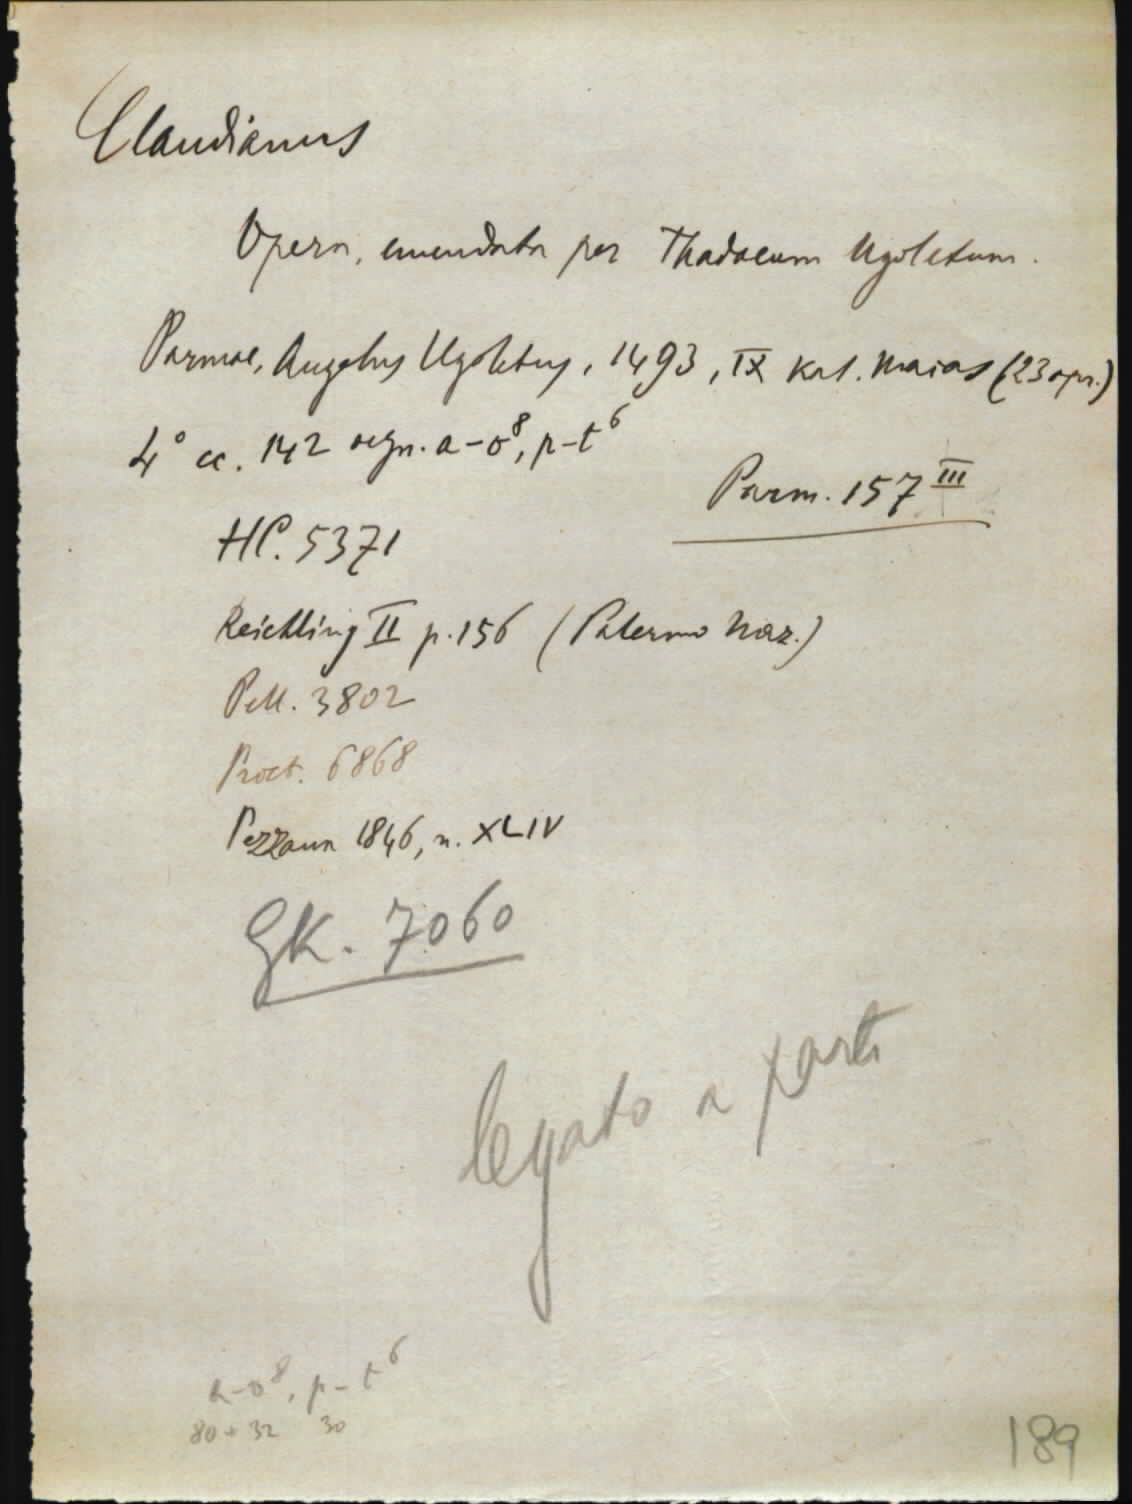 Claudianus
Opera, emendata per Thadaeum Ugoletum.
Parmae, Angelus Ugoletus, 1493, IX Kal. Maias (23 apr.)
4° cc. 142 segn. a-o⁸, p-t⁶
Parm. 157 III
HC. 5371
Reichling II p. 156 (Palermo Naz.)
Pell. 3802
Proct. 6868
Pezzana 1846, n. XLIV
GK. 7060
legato a parte
a-o⁸, p-t⁶
80+32 30
189